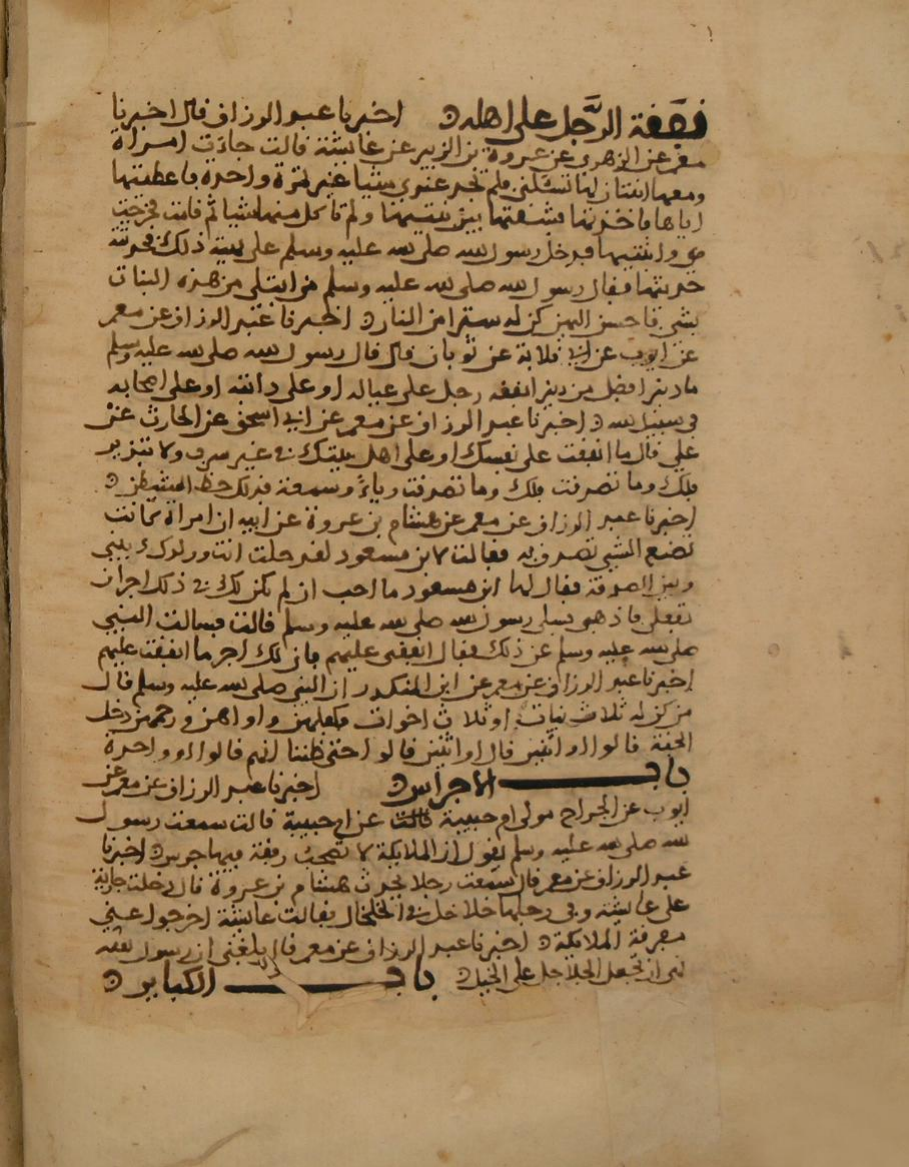 نفقة الرجل على اهله اخبرنا عبد الرزاق قال اخبرنا
معمر عن الزهري عن عروة بن الزبير عن عائشة قالت جاءت امراة
ومعها ابنتان لها تسئلني فلم تجد عندي شيئا غير تمرة واحدة فاعطيتها
اياها فاخذتها فشقتها بين بنتيها ولم تاكل منها شيا ثم قامت فخرجت
هي وابنتيها فدخل رسول الله صلى الله عليه وسلم على بقية ذلك فحدثته
حديثها فقال رسول الله صلى الله عليه وسلم من ابتلي من هذه البنات
بشي فاحسن اليهن كن له سترا من النار اخبرنا عبد الرزاق عن معمر
عن ايوب عن ابي قلابة عن ثوبان قال قال رسول الله صلى الله عليه وسلم
ما دينر افضل من دينر انفقه رجل على عياله او على دابته او على اصحابه
في سبيل الله اخبرنا عبد الرزاق عن معمر عن ابي اسحق عن الحارث عن
علي قال ما انفقت على نفسك او على اهل بيتك في غير سرف ولا تبذير
فلك وما تصدقت فلك وما تصدقت رياء وسمعة فذلك حظ الشيطن
اخبرنا عبد الرزاق عن معمر عن هشام بن عروة عن ابيه ان امراة كانت
تصنع الشي تصدق به فقالت لابن مسعود لقد حلت انت وولدك بيني
وبين الصدقة فقال لها ابن مسعود ما احب ان لم يكن لك في ذلك اجر ان
تفعلي فاذهبي فسلي رسول الله صلى الله عليه وسلم قالت فسالت النبي
صلى الله عليه وسلم عن ذلك فقال انفقي عليهم فان لك اجر ما انفقت عليهم
اخبرنا عبد الرزاق عن معمر عن ابن المنكدر ان النبي صلى الله عليه وسلم قال
من كن له ثلاث بنات او ثلاث اخوات فكفلهن واواهن ورحمهن دخل
الجنة قالوا او اثنين قال او اثنين قالو احتى ظننا انهم قالوا او واحدة
باب الاجراس اخبرنا عبد الرزاق عن معمر عن
ايوب عن الجراح مولى ام حبيبة قالت عن ام حبيبة قالت سمعت رسول
الله صلى الله عليه وسلم يقول ان الملايكة لا تصحب رفقة فيها جرس اخبرنا
عبد الرزاق عن معمر قال سمعت رجلا يحدث هشام بن عروة قال دخلت جارية
على عائشة وفي رجلها خلاخل في الخلخال فقالت عائشة اخرجوا عني
مفرقة الملايكة اخبرنا عبد الرزاق عن معمر قال بلغني ان رسول الله
نهى ان تجعل الجلاجل على الخيل باب الكبائر